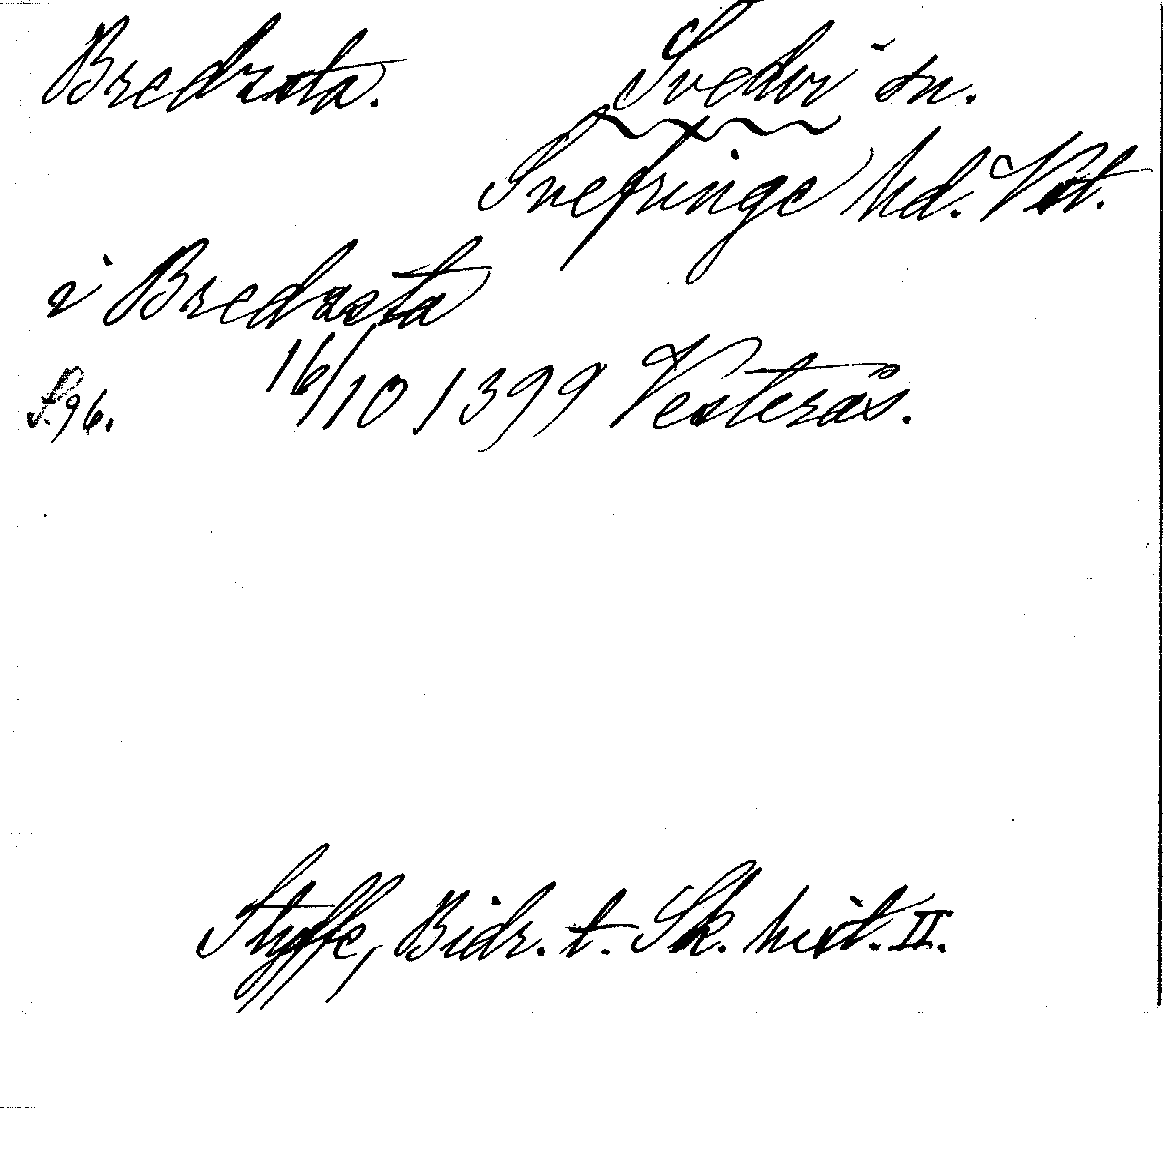 Bredsta. Svedvi sn.
Snefringe hd. Vst.
i Bredzsta
S. 96. 16/10 1399 Vesterås.
Styffe, Bidr. t. Sk. hist. II.